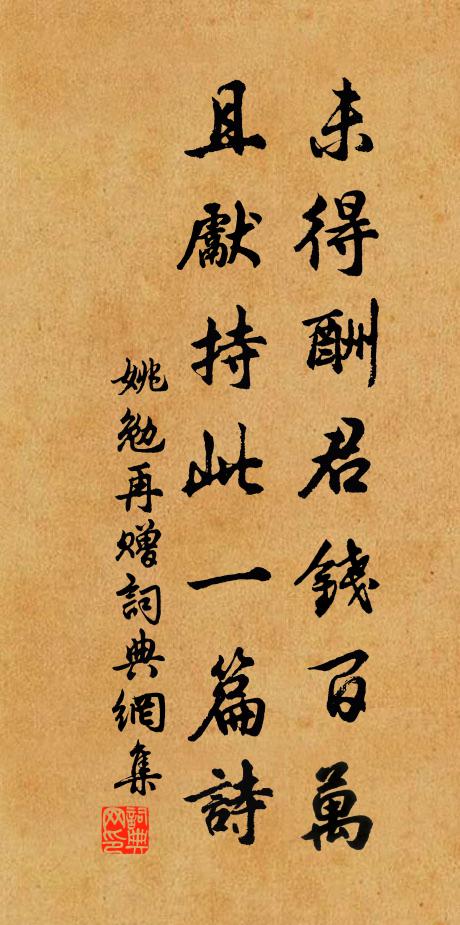 未得酬君錢百萬
且獻持此一篇詩
姚勉再赠詞典網集
詞典网印